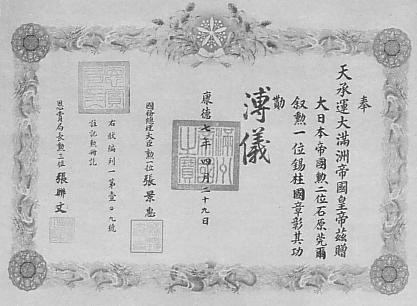 奉
天承運大滿洲帝國皇帝茲贈
大日本帝國勲二位石原莞爾
叙勲一位錫柱國章彰其功
勲
溥儀
康德七年四月二十九日
國務總理大臣勲一位張景惠
右狀編列一第壹〇九號
註記勲冊訖
恩賞局長勲三位張聯文